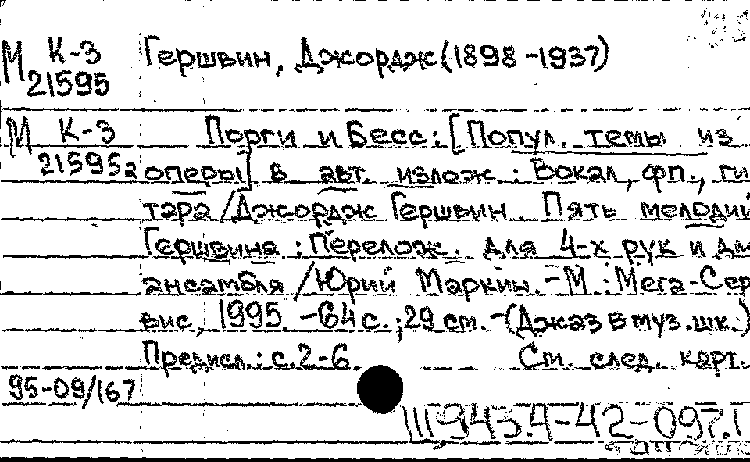 М К-3 Гершвин, Джордж (1898-1937)
21595
М К-3 Порги и Бесс: [Попул. темы из
21595а оперы] в авт. излож.: Вокал, фп., ги
тара / Джордж Гершвин. Пять мелодий
Гершвина: Перелож. для 4-х рук и дж
ансамбля / Юрий Маркин. - М.: Мега-Сер
вис, 1995. - 64 с.; 29 см. - (Джаз в муз. шк.)
Предисл.: с. 2-6 См. след. карт.
95-09/167
Ш943.4-42-097.1